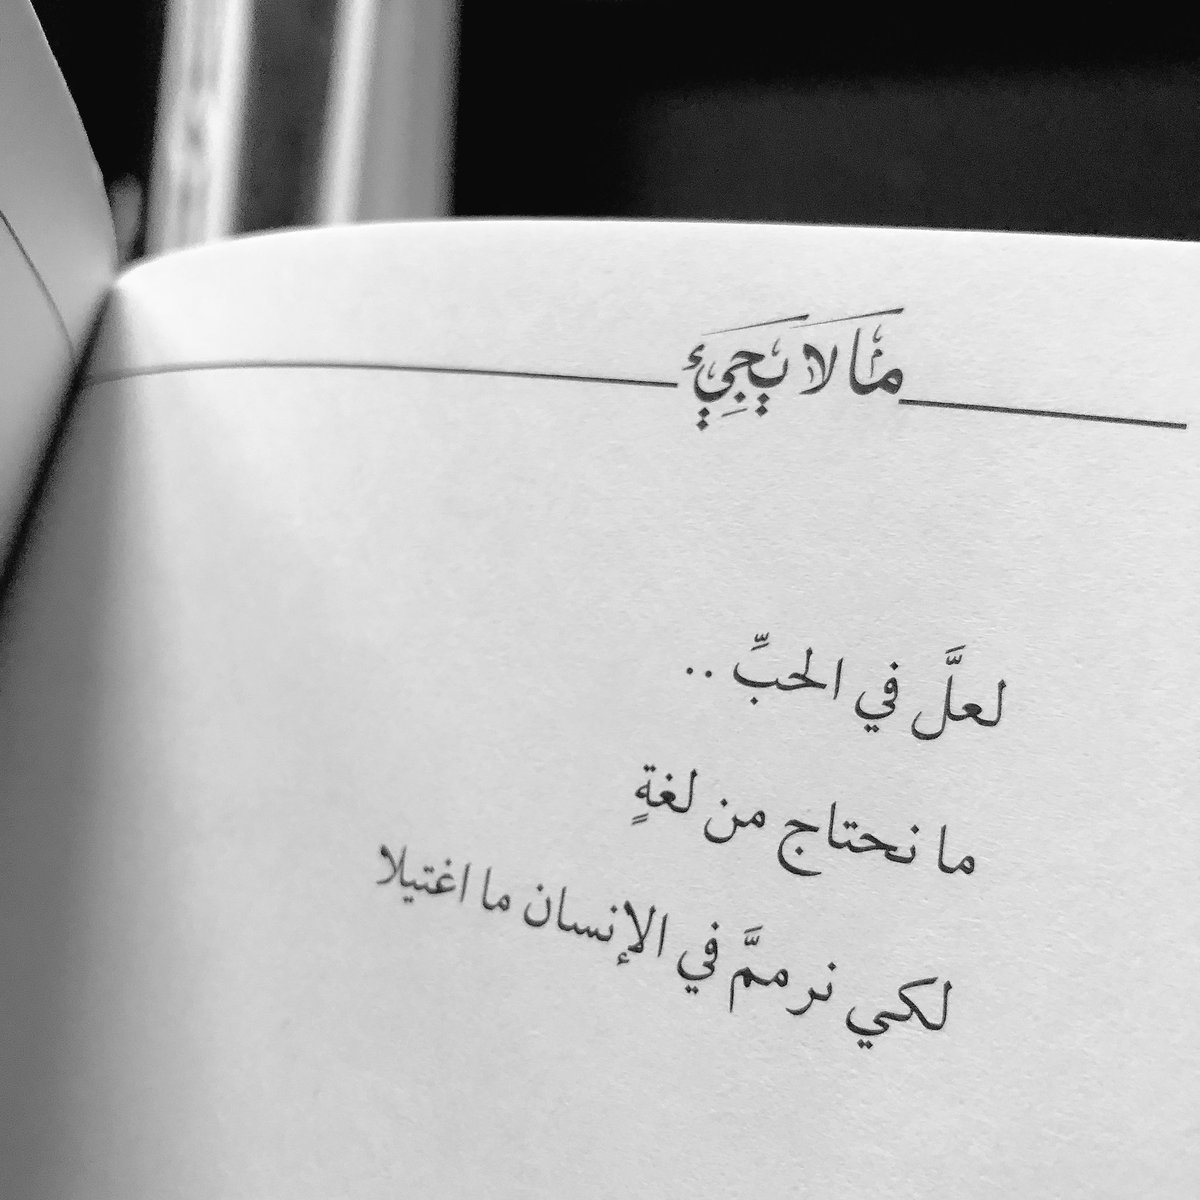 مَا لا يَجِيءُ
لعلَّ في الحبِّ ..
ما نحتاج من لغةٍ
لكي نرممَّ في الإنسان ما اغتيلا